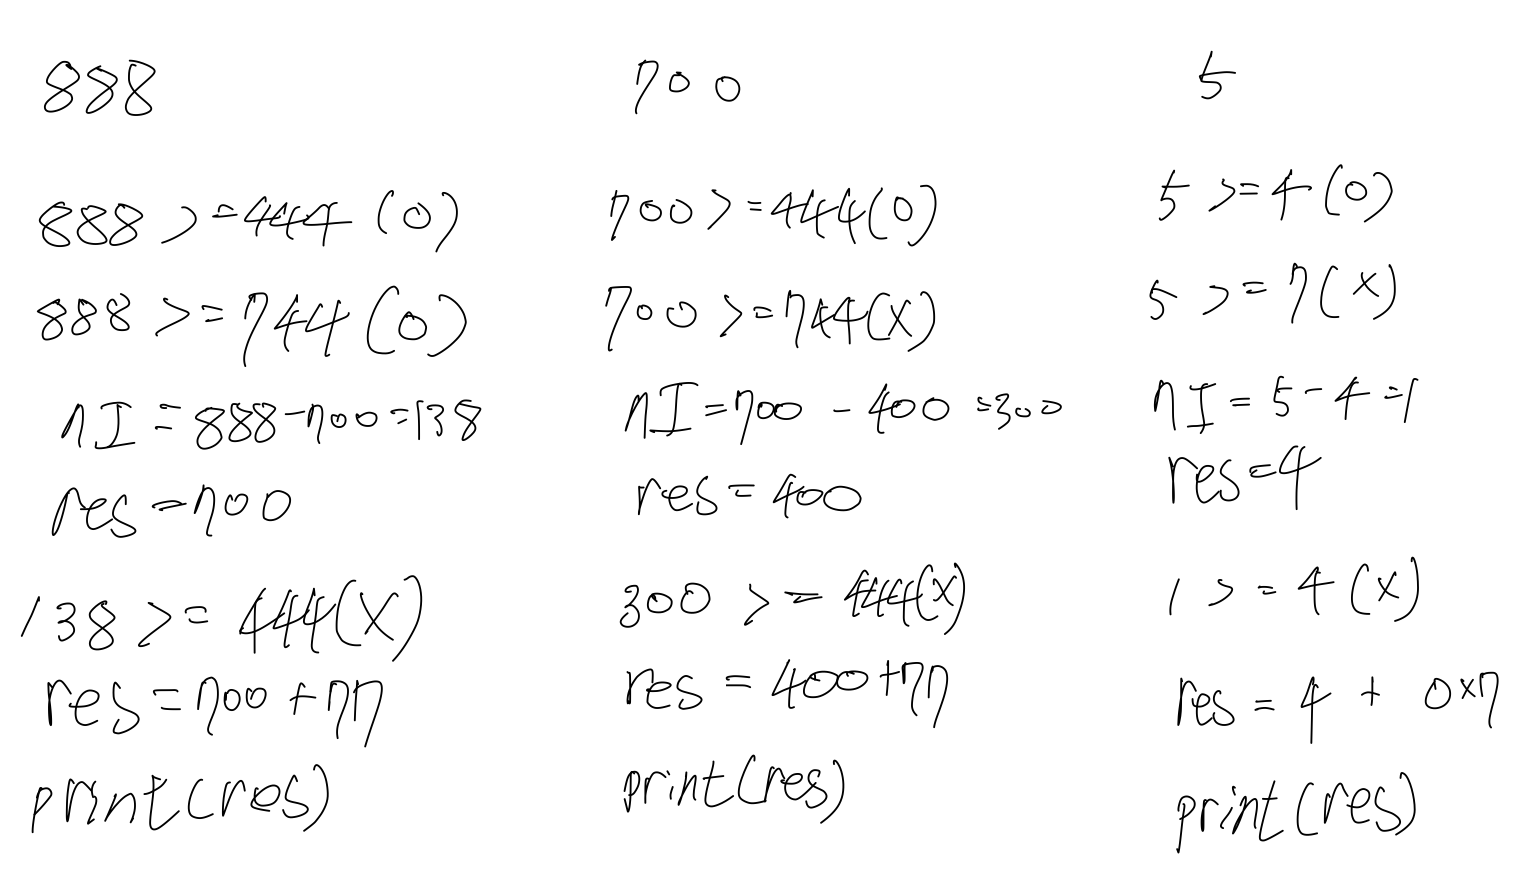 888
888 >=444 (O)
888 >=744 (O)
nI = 888-700=138
res =700
138 >= 444(X)
res = 700 + 77
print(res)
700
700 >=444(O)
700 >=744(X)
nI =700 - 400 =300
res = 400
300 >= 444(X)
res = 400+77
print(res)
5
5 >=4 (O)
5 >= 7 (X)
nI = 5-4=1
res=4
1 >= 4 (X)
res = 4 + 0x7
print(res)